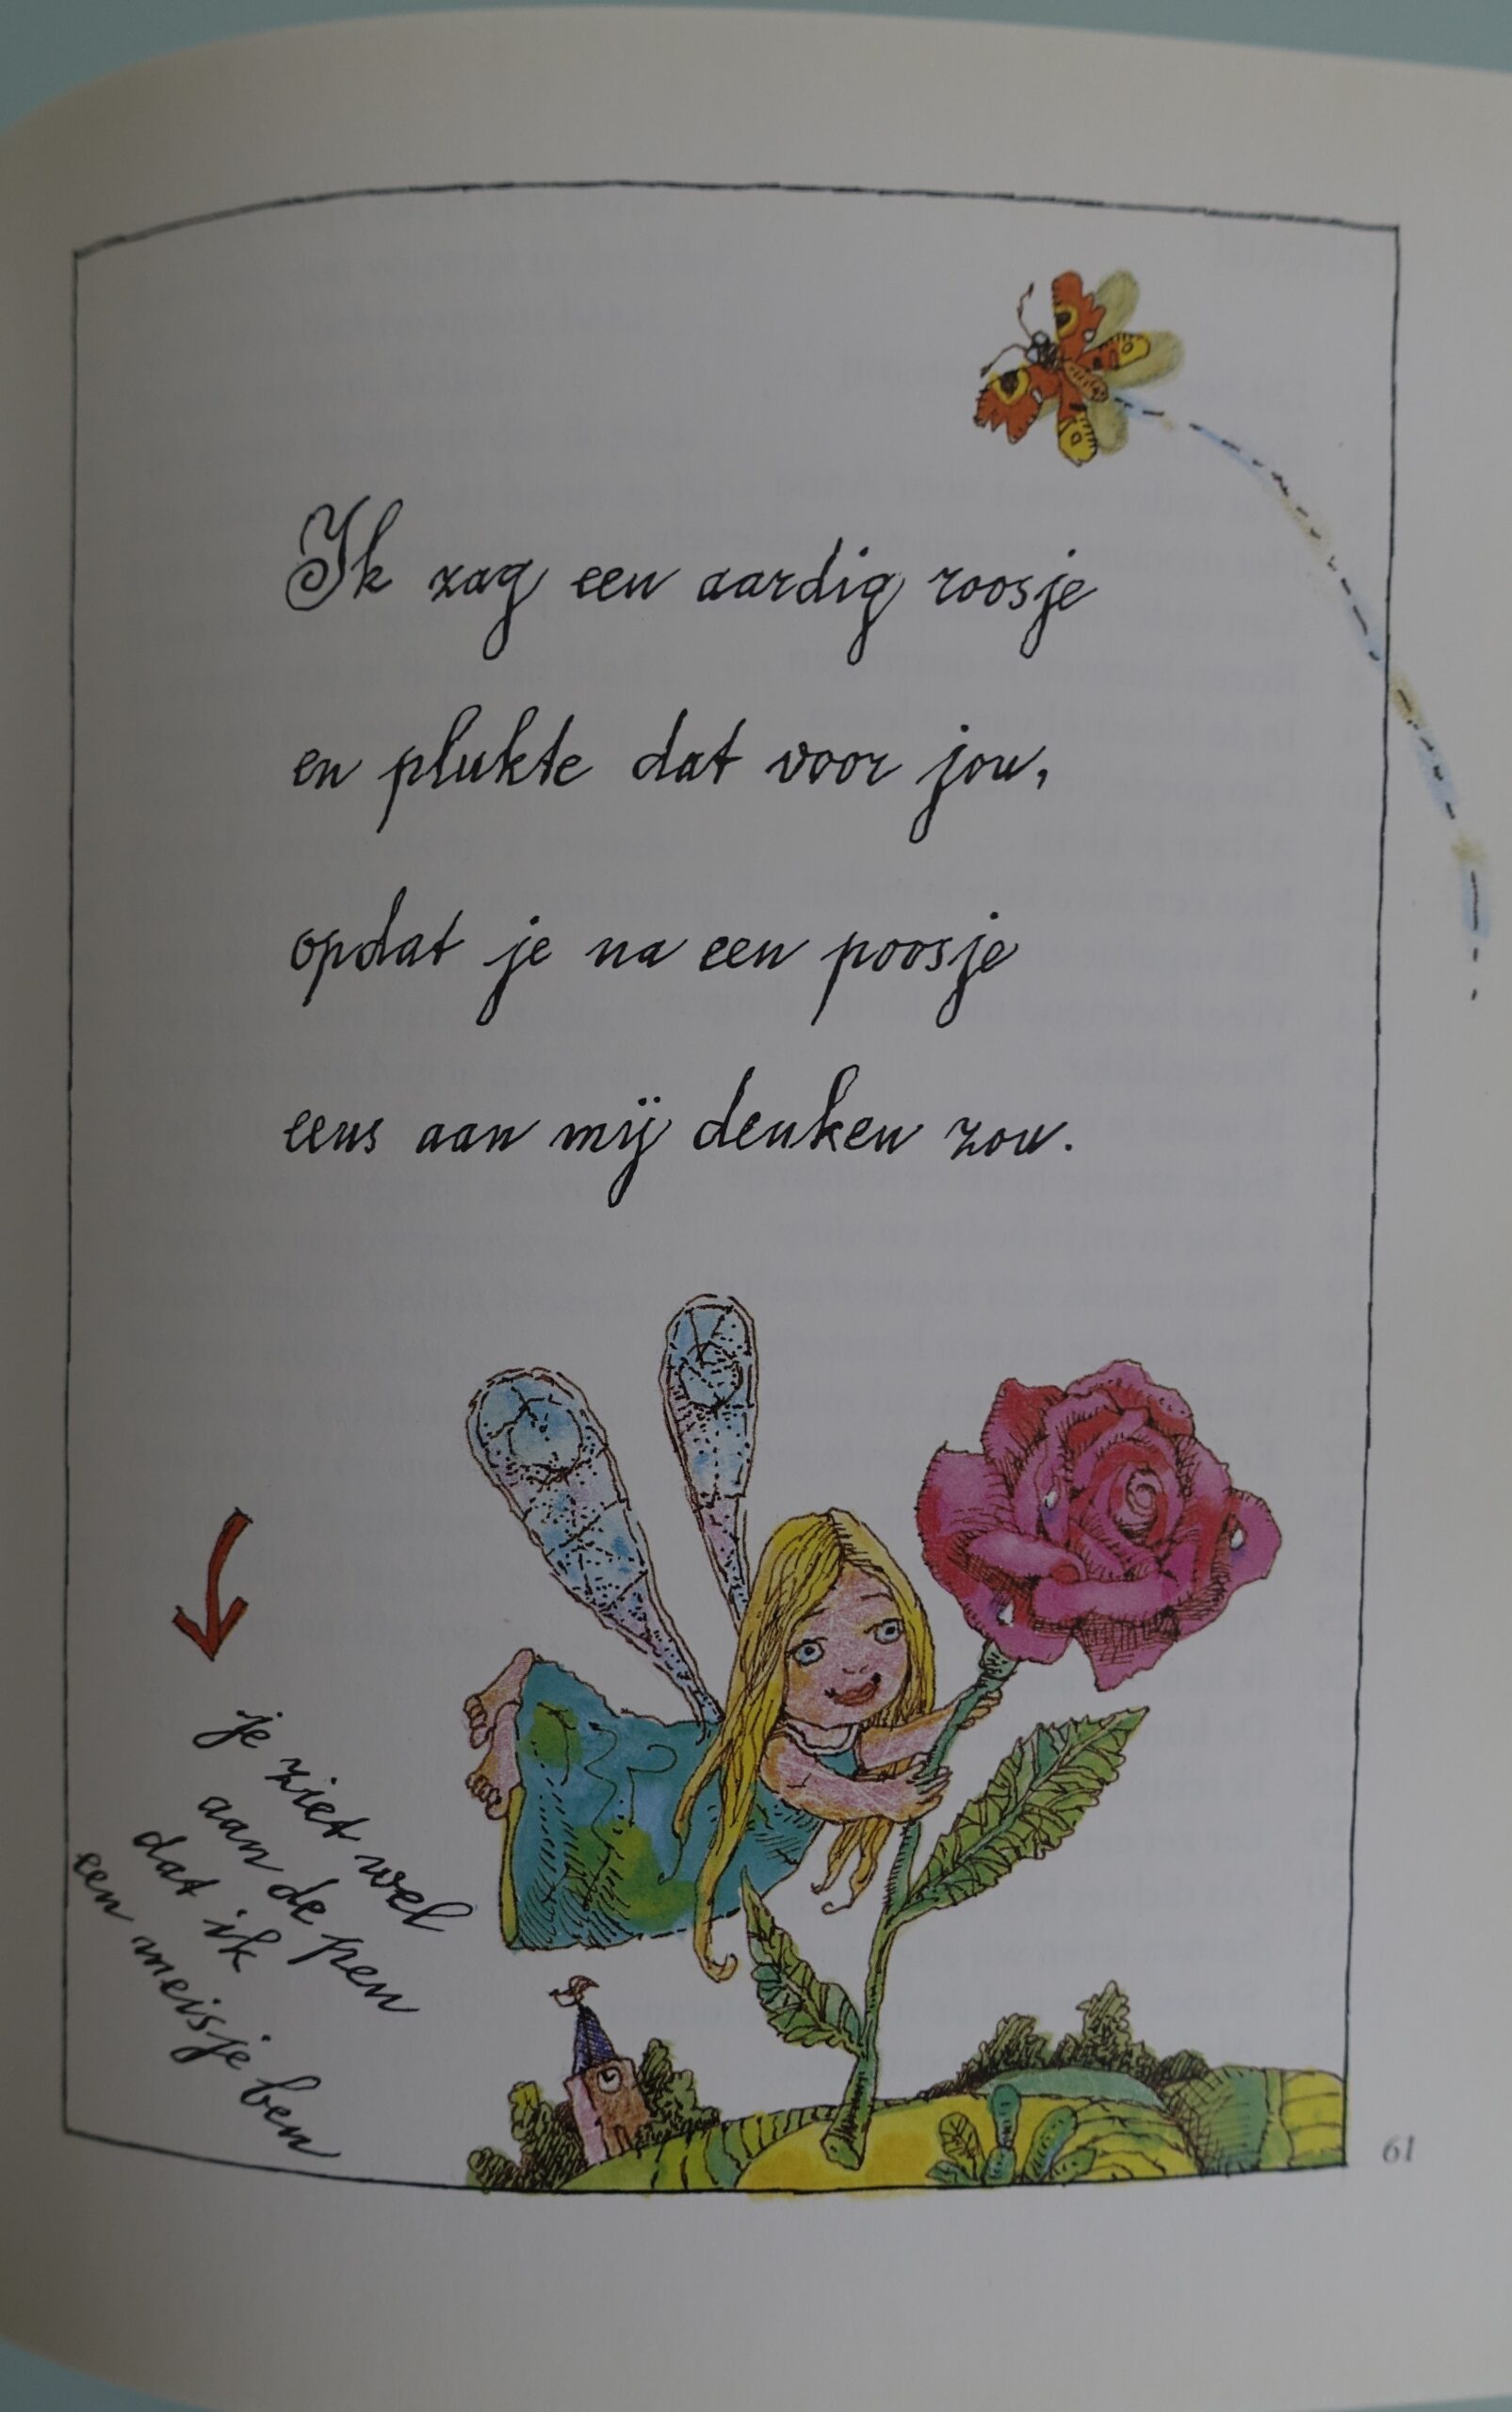 Ik zag een aardig roosje
en plukte dat voor jou,
opdat je na een poosje
eens aan mij denken zou.
je ziet wel
aan de pen
dat ik
een meisje ben
61